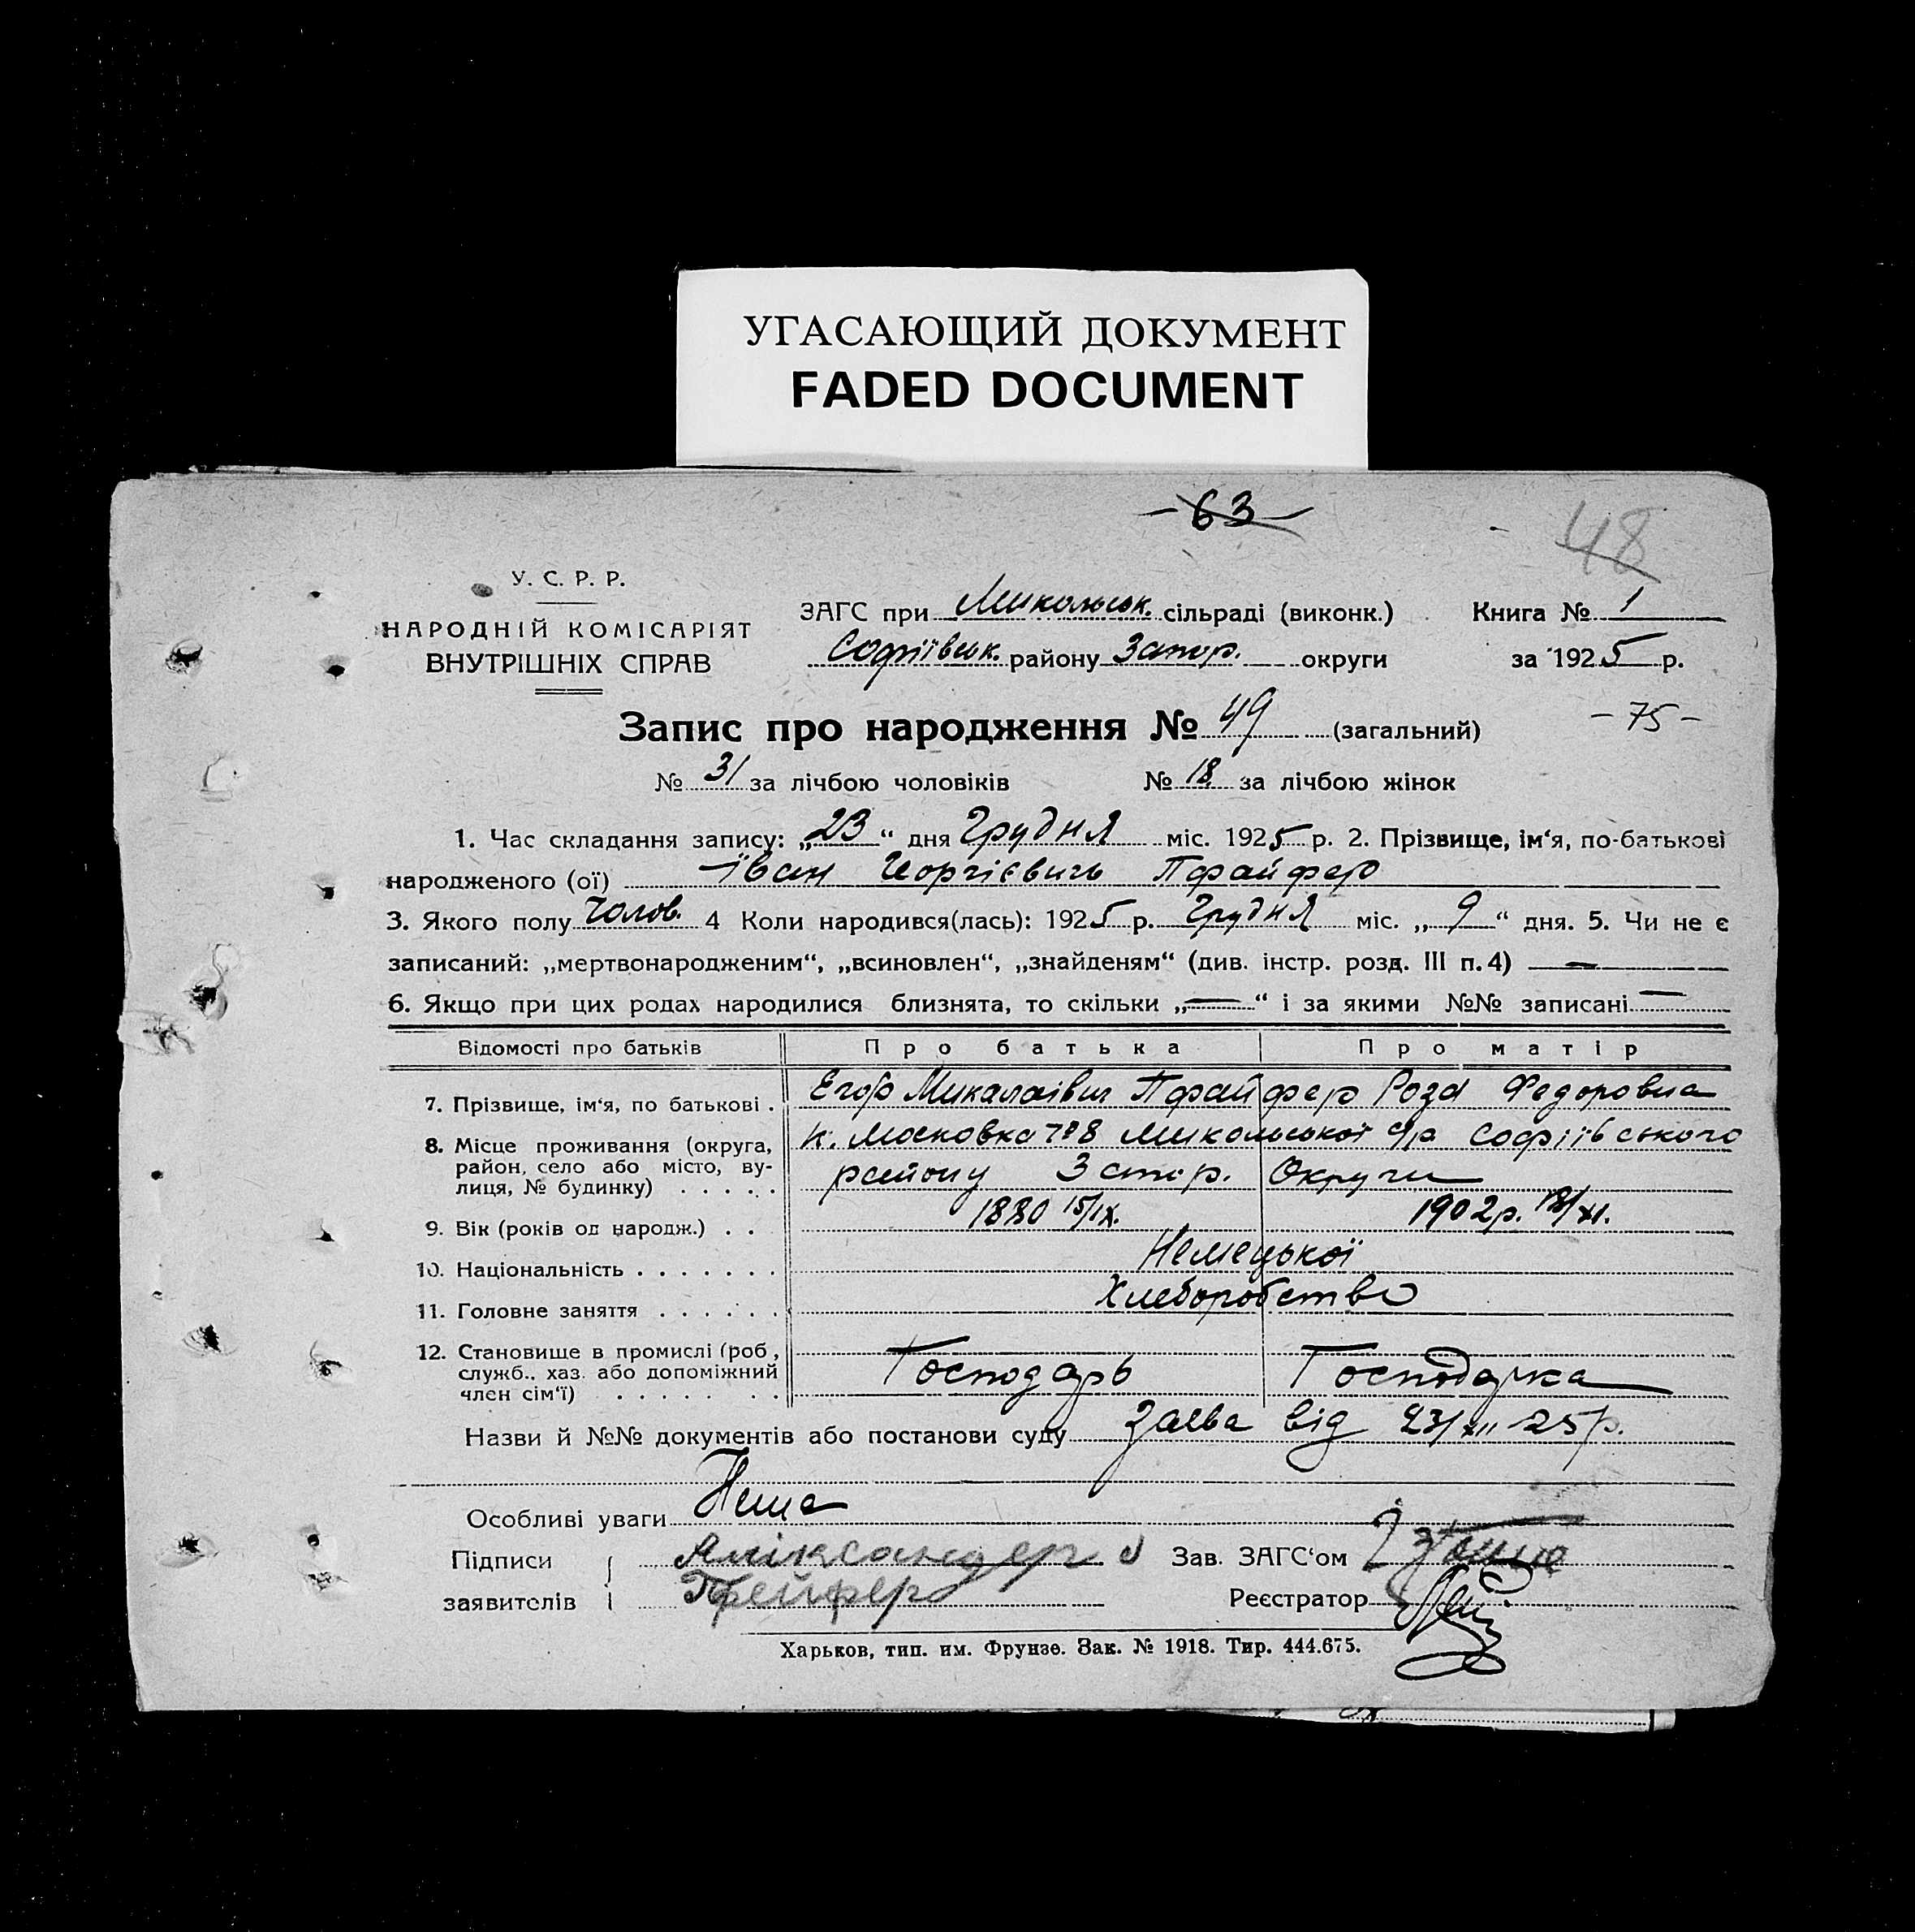 УГАСАЮЩИЙ ДОКУМЕНТ
FADED DOCUMENT
- 63 -
48
У. С. Р. Р.
НАРОДНІЙ КОМІСАРІЯТ
ВНУТРІШНІХ СПРАВ
ЗАГС при Микольськ. сільраді (виконк.) Книга № 1
Софіївськ. району Запор. округи за 1925 р.
Запис про народження № 49 (загальний) - 75 -
№ 31 за лічбою чоловіків № 18 за лічбою жінок
1. Час складання запису: „23“ дня Грудня міс. 1925 р. 2. Прізвище, ім‘я, по-батькові
народженого (ої) Іван Георгієвичь Пфайфер
3. Якого полу Чолов. 4 Коли народився(лась): 1925 р. Грудня міс. „9“ дня. 5. Чи не є
записаний: „мертвонародженим“, „всиновлен“, „знайденям“ (див. інстр. розд. III п. 4) —
6. Якщо при цих родах народилися близнята, то скільки „—“ і за якими №№ записані —
Відомості про батьків Про батька Про матір
7. Прізвище, ім‘я, по батькові . Егор Микалаівич Пфайфер Роза Федоровна
8. Місце проживання (округа, район, село або місто, ву-лиця, № будинку) . . . . . к. Московка № 8 Микольської с/р Софіївського
району Запор. Округи
9. Вік (років од народж.) . . 1880 15/IX. 1902р. 18/XI.
10. Національність . . . . . . . Немецької
11. Головне заняття . . . . . . Хлеборобство
12. Становище в промислі (роб, служб., хаз. або допоміжний член сім‘ї) . . . . . . . Господарь Господарка
Назви й №№ документів або постанови суду Заява від 23/XII 25р.
Особливі уваги Нема
Підписи Аліксандер Зав. ЗАГС‘ом
заявителів Пфейфер Реєстратор
Харьков, тип. им. Фрунзе. Зак. № 1918. Тир. 444.675.